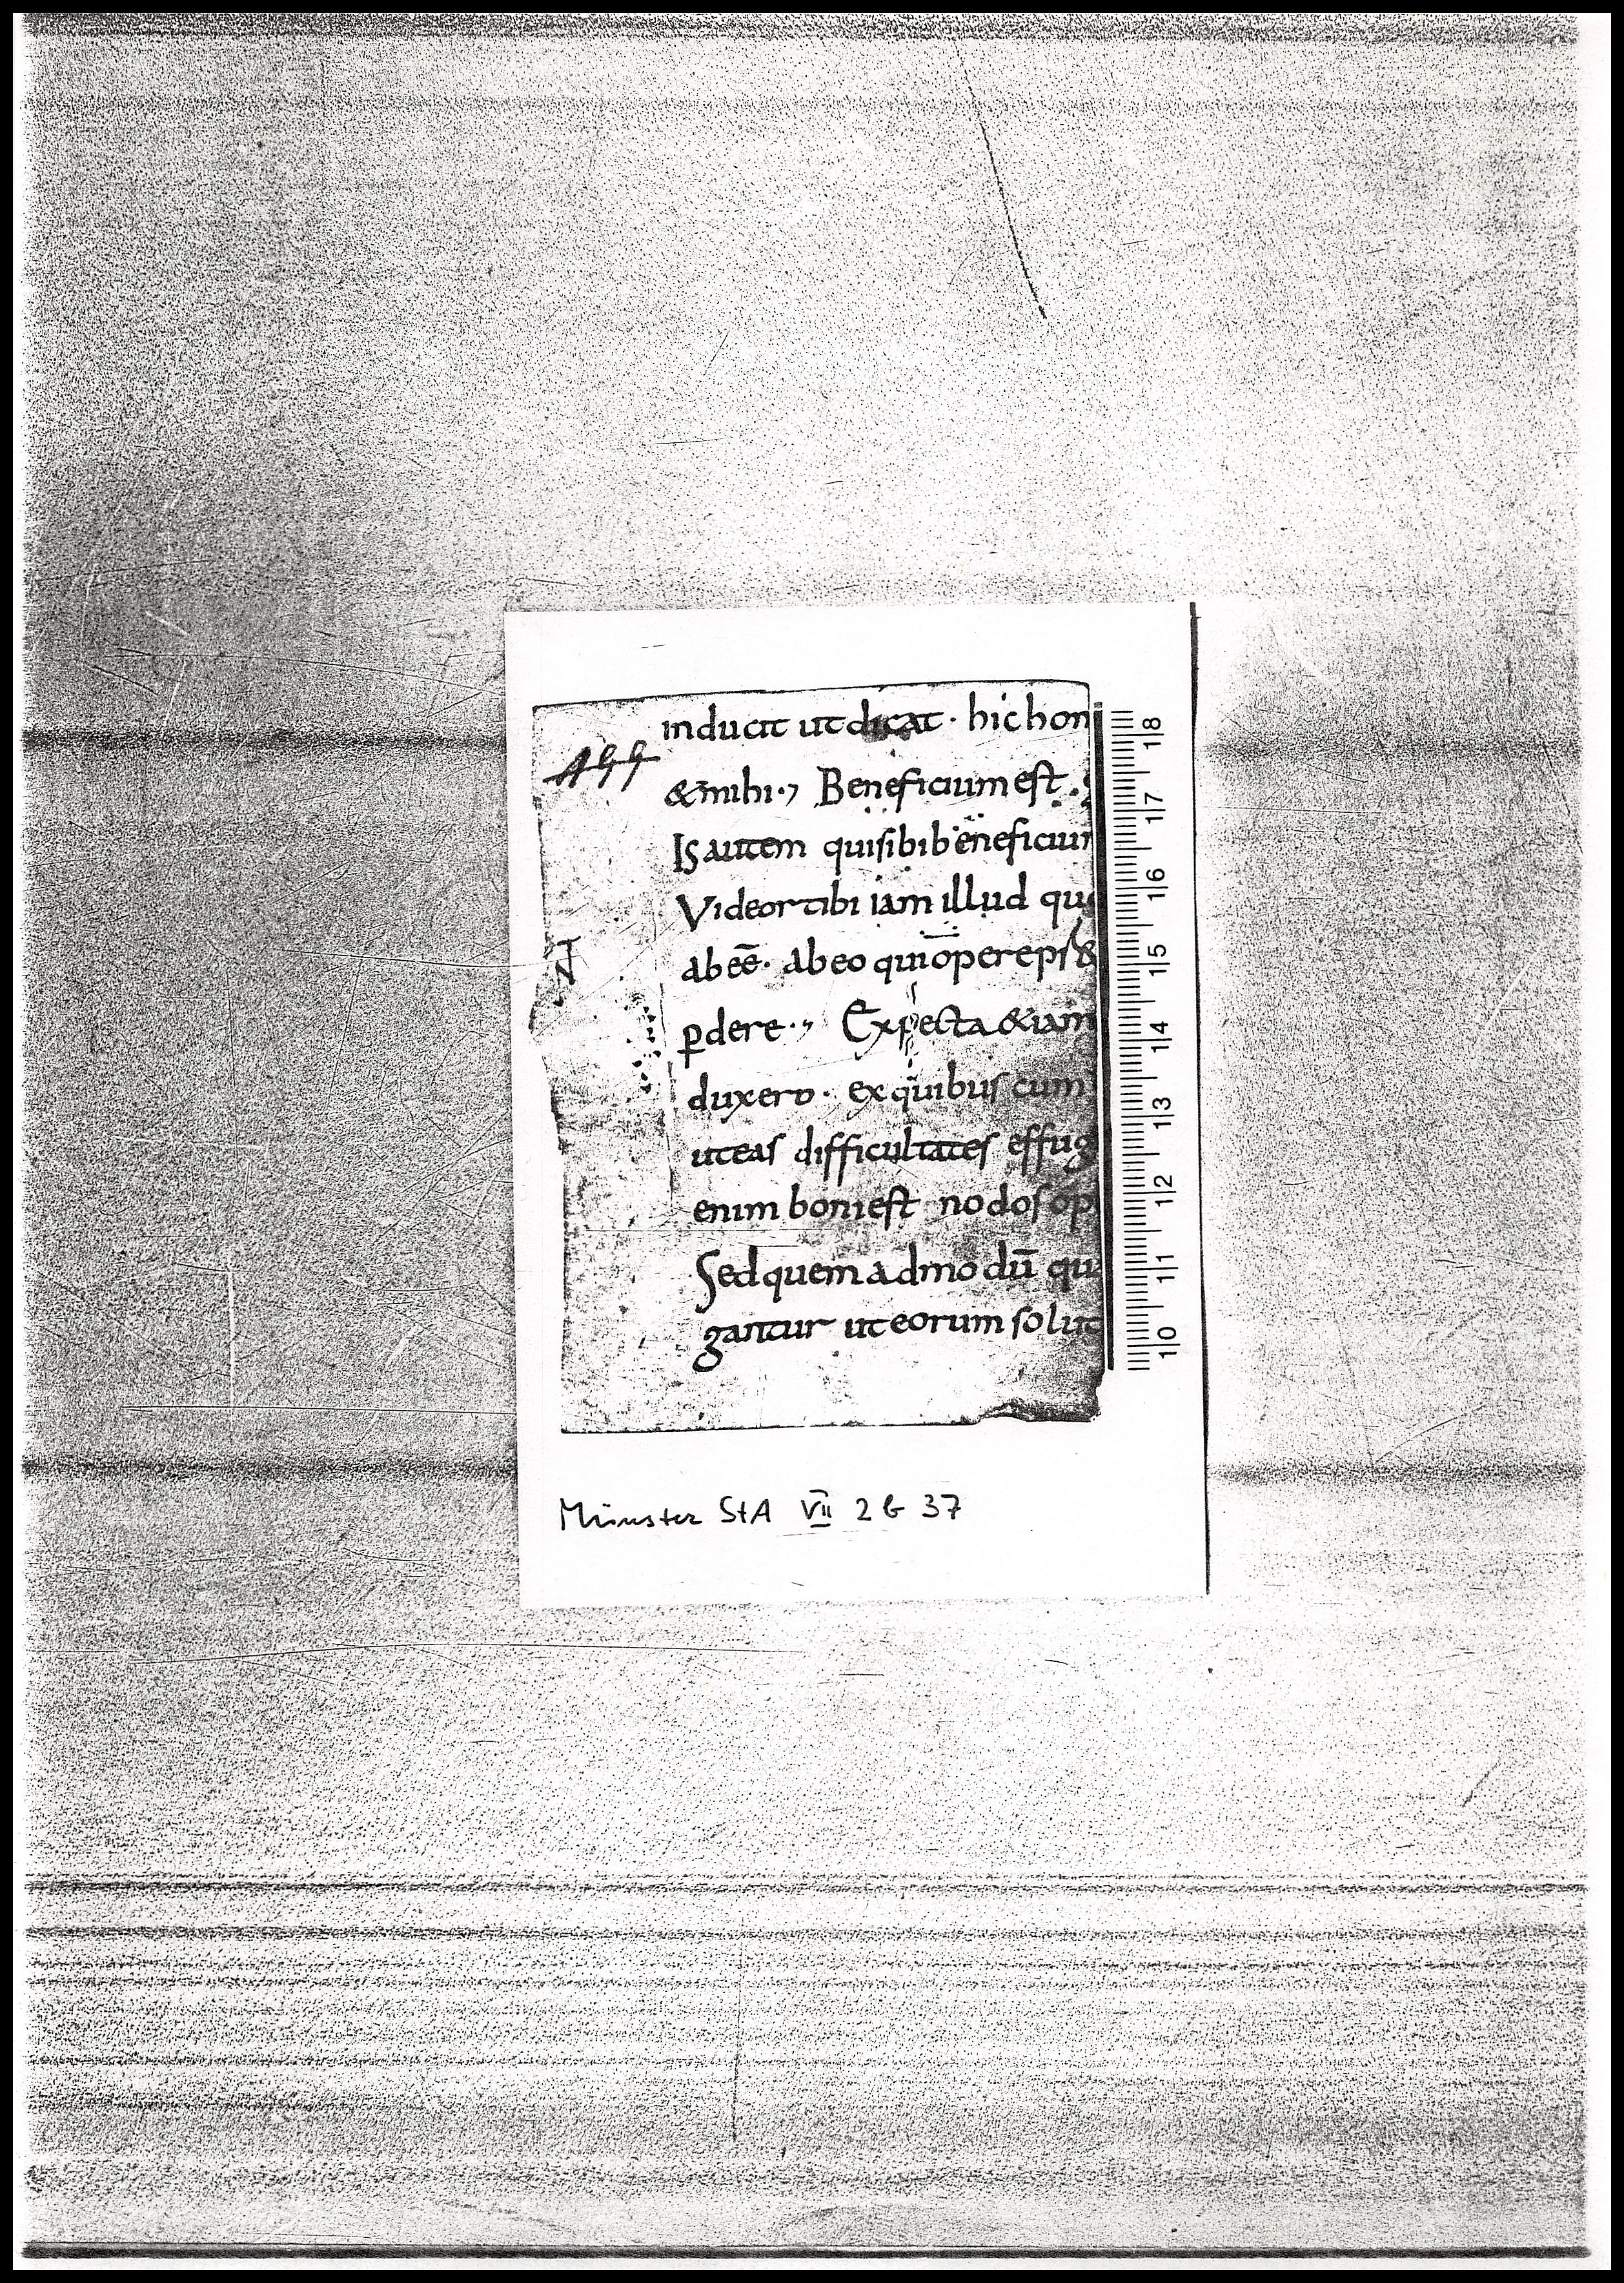 inducit ut dicat · hic hom
499
& mihi ·, Beneficium est ·
Is autem qui sibi beneficium
Videor tibi iam illud quo
ab eē · ab eo qui opere ps &
ꝑdere ·, Expecta & iam
duxero · ex quibus cum
N
ut eas difficultates effug
enim boni est nodos op
Sed quem ad modū qu
gantur ut eorum solut
8
7
6
5
4
3
2
1
0
Münster StA VII 2 b 37